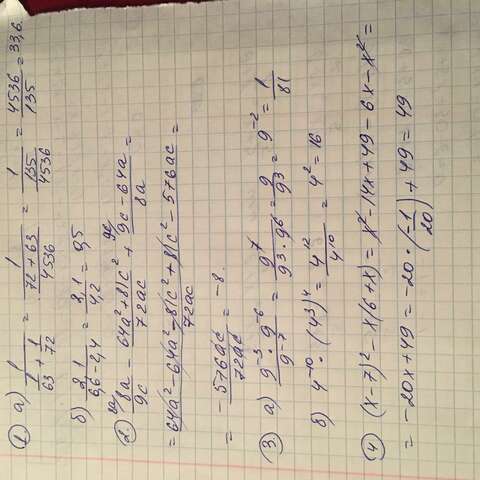 1. а) 1/(1/63 + 1/72) = 1/((72+63)/4536) = 1/(135/4536) = 4536/135 = 33,6.
б) 2,1/(6,6-2,4) = 2,1/4,2 = 0,5
2. 8a/9c - (64a²+81c²)/72ac + (9c-64a)/8a
= (64a²-64a²-81c²+81c²-576ac)/72ac =
= -576ac/72ac = -8.
3. а) (9⁻³·9⁻⁶)/9⁻⁷ = 9⁷/(9³·9⁶) = 9/9³ = 9⁻² = 1/81
б) 4⁻¹⁰·(4³)⁴ = 4¹²/4¹⁰ = 4² = 16
4 (x-7)² - x(6+x) = x²-14x+49-6x-x² =
= -20x+49 = -20·(-1/20)+49 = 49